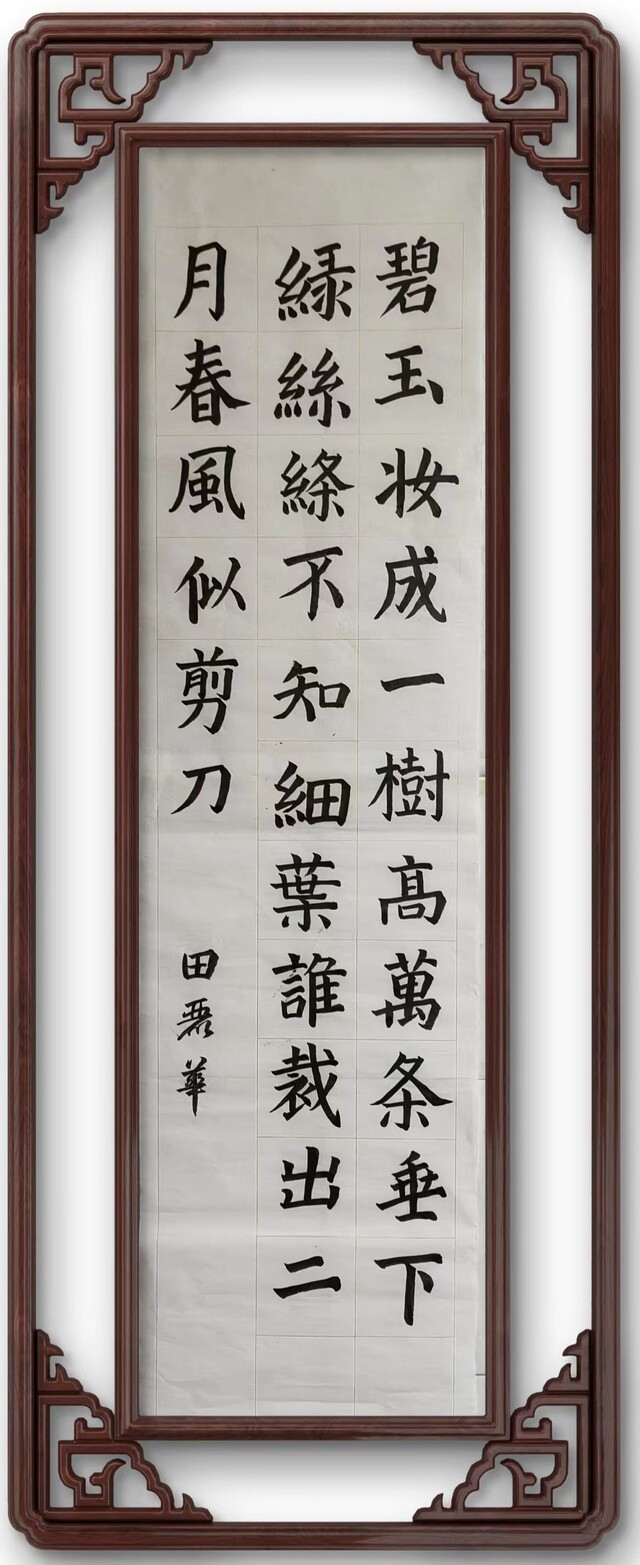 碧玉妆成一樹髙萬条垂下
緑絲絛不知細葉誰裁出二
月春風似剪刀
田華